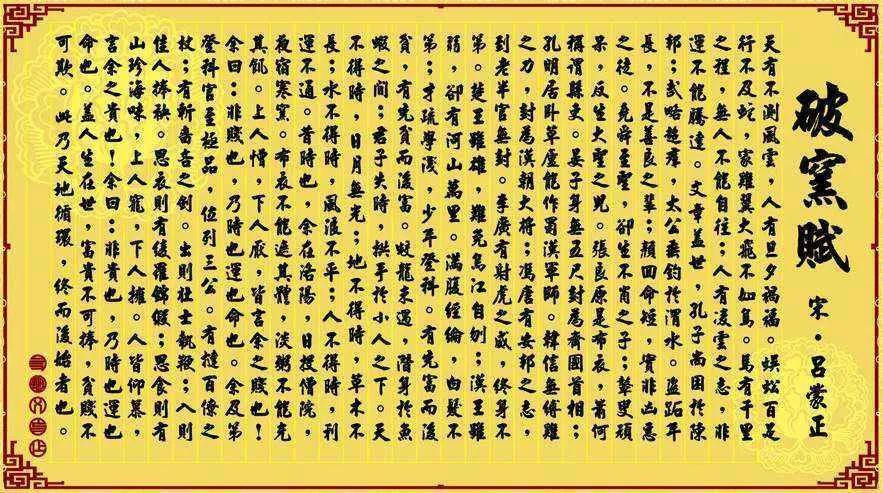 破窯賦
宋·呂蒙正
天有不測風雲,人有旦夕禍福。蜈蚣百足
行不及蛇,家雞翼大飛不如鳥。馬有千里
之程,無人不能自往;人有凌雲之志,非
運不能騰達。文章蓋世,孔子尚困於陳
邦;武略超羣,太公垂釣於渭水。盜跖年
長,不是善良之輩;顏回命短,實非凶惡
之徒。堯舜至聖,卻生不肖之子;瞽叟頑
呆,反生大聖之兒。張良原是布衣,蕭何
稱謂縣吏。晏子身無五尺封為齊國首相;
孔明居卧草廬能作蜀漢軍師。韓信無縛雞
之力,封為漢朝大將;馮唐有安邦之志,
到老半官無封。李廣有射虎之威,終身不
第。楚王雖雄,難免烏江自刎;漢王雖
弱,卻有河山萬里。滿腹經綸,白髮不
第;才疏學淺,少年登科。有先富而後
貧,有先貧而後富。蛟龍未遇,潛身於魚
蝦之間;君子失時,拱手於小人之下。天
不得時,日月無光;地不得時,草木不
長;水不得時,風浪不平;人不得時,利
運不通。昔時也,余在洛陽,日投僧院,
夜宿寒窯。布衣不能遮其體,淡粥不能充
其飢。上人憎,下人厭,皆言余之賤也!
余曰:非賤也,乃時也運也命也。余及第
登科官至極品,位列三公。有撻百僚之
杖;有斬嗇吝之劍。出則壯士執鞭;入則
佳人捧秧。思衣則有綾羅錦緞;思食則有
山珍海味,上人寵,下人擁。人皆仰慕,
言余之貴也!余曰:非貴也,乃時也運也
命也。蓋人生在世,富貴不可捧,貧賤不
可欺。此乃天地循環,終而復始者也。